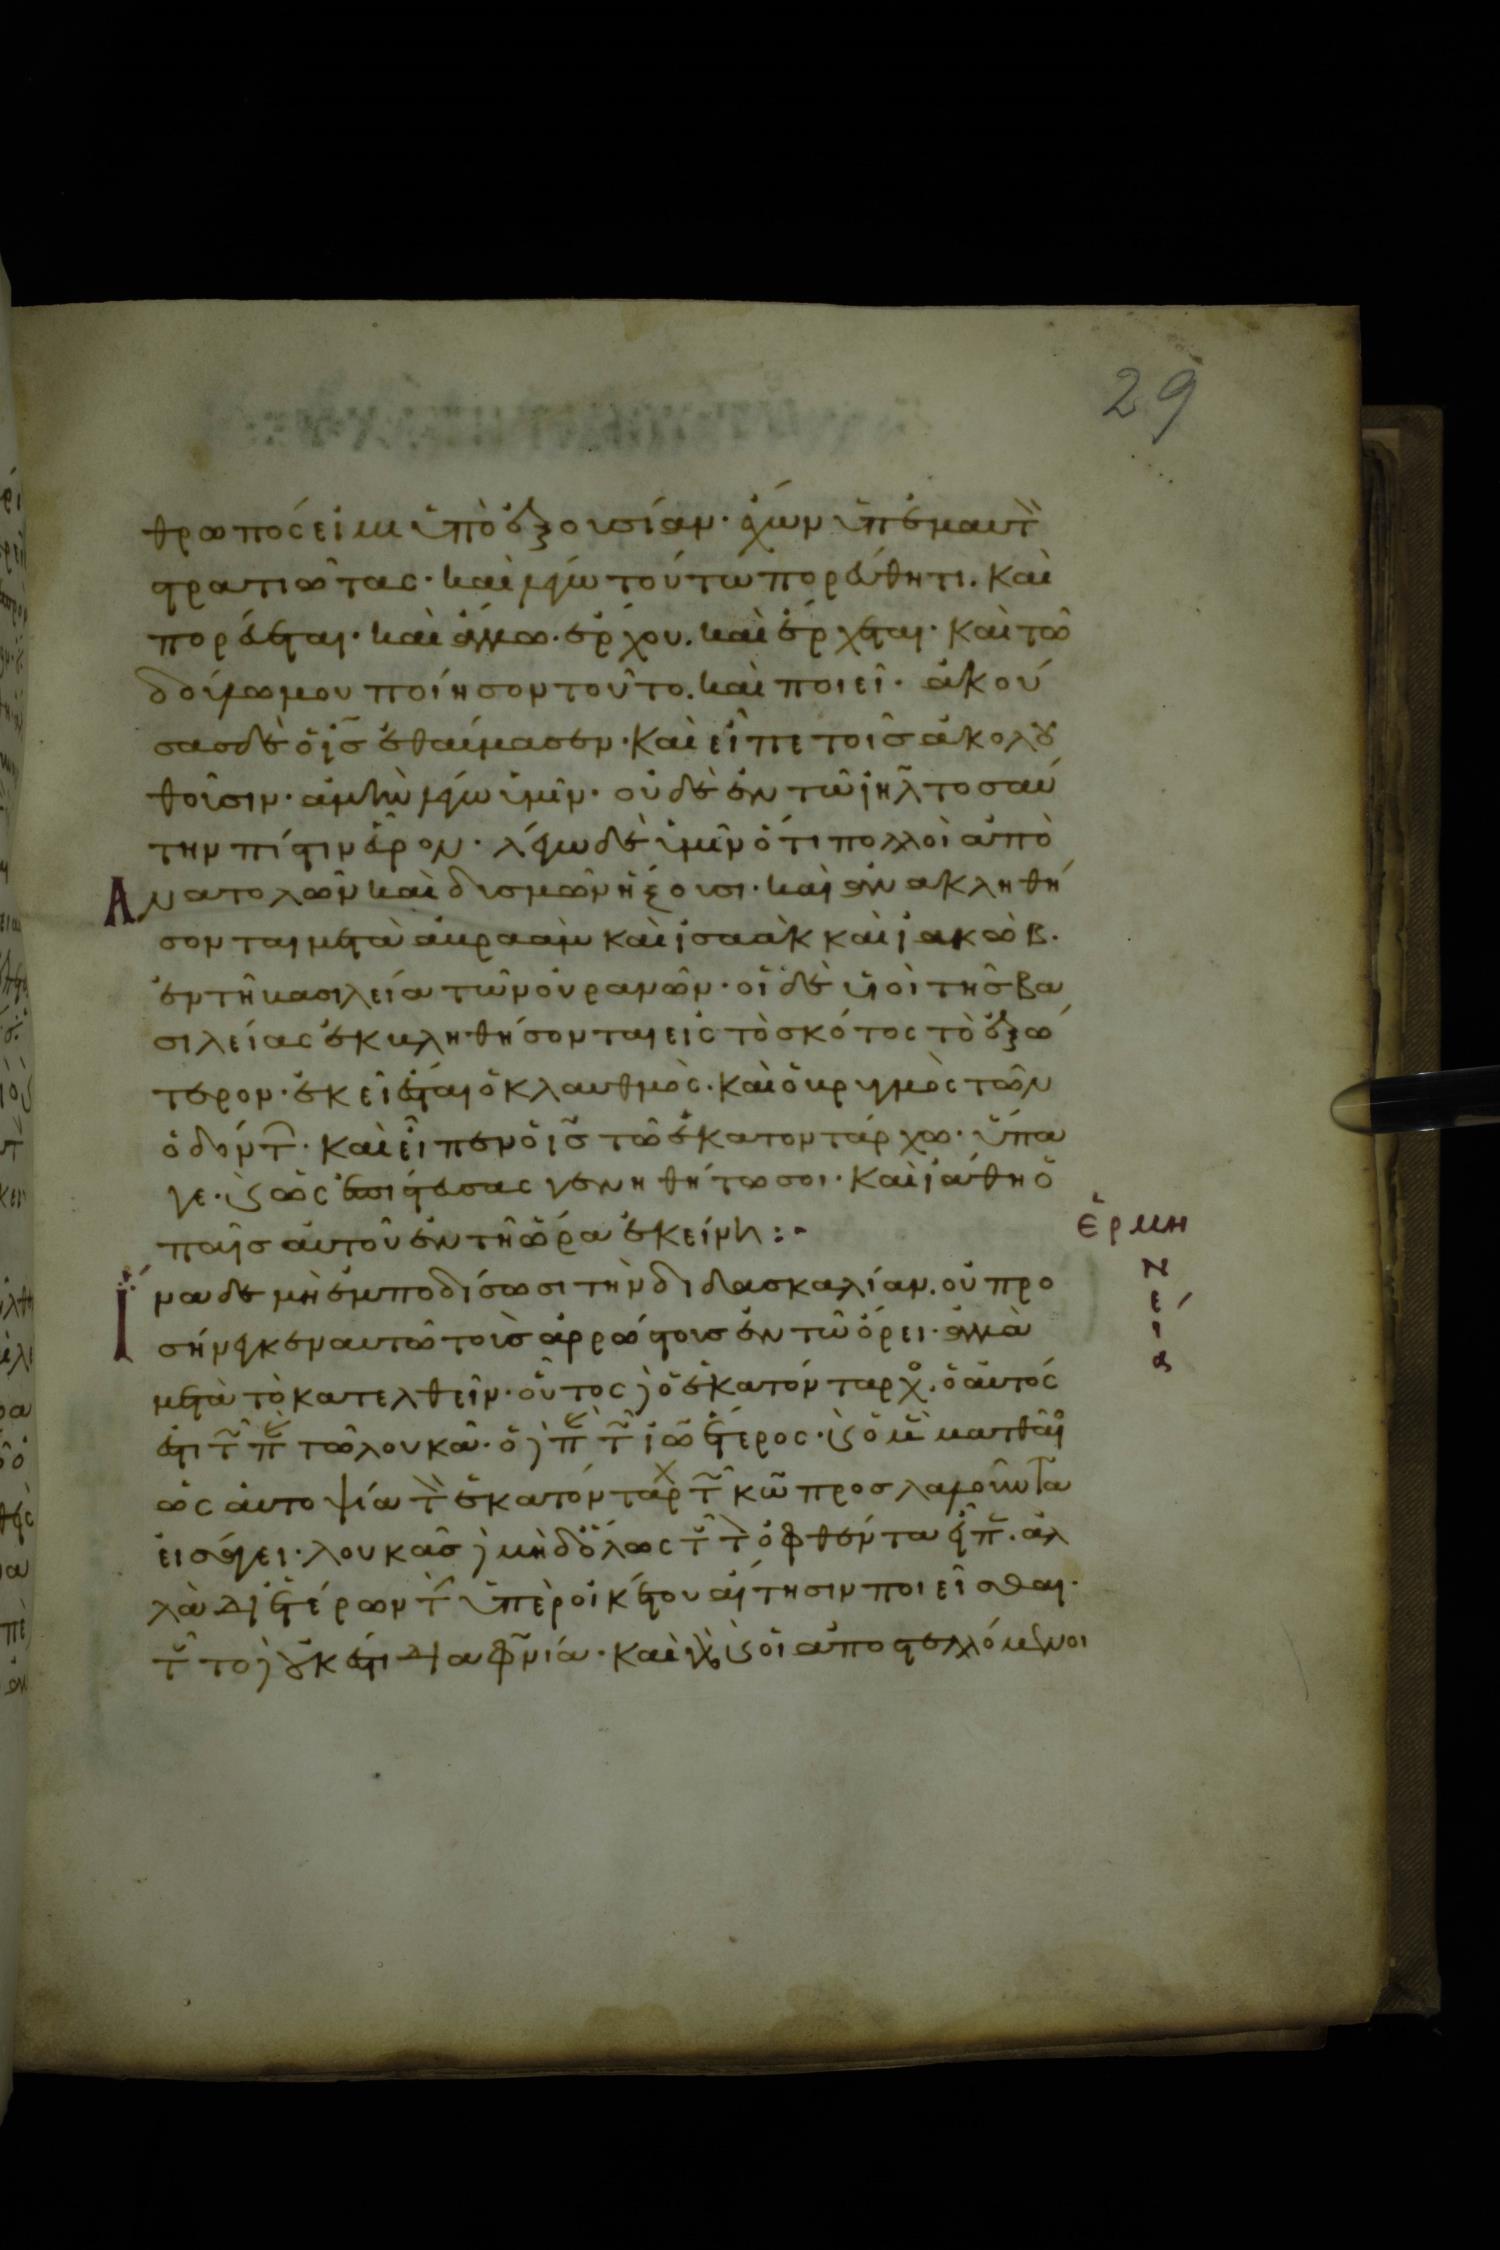 29
θρωπός εἰμι ὑπὸ ἐξουσίαν· ἔχων ὑπ' ἐμαυτ
στρατιώτας· καὶ λέγω τούτω πορεύθητι. καὶ
πορεύεται· καὶ ἄλλω· ἔρχου. καὶ ἔρχεται· καὶ τῶ
δούλω μου ποίησον τοῦτο. καὶ ποιεῖ· ἀκού
σας δὲ ὁ ι̅ς̅ ἐθαύμασεν· καὶ εἶπε τοῖς ἀκολου
θοῦσιν· ἀμὴν λέγω ὑμῖν· οὐδὲ ἐν τῶ ι̅η̅λ̅ τοσαύ
την πίστιν εὗρον· λέγω δὲ ὑμῖν ὅτι πολλοὶ ἀπὸ
Ανατολῶν καὶ δυσμῶν ἥξουσι· καὶ ἀνακληθή
σονται μετὰ ἀβραὰμ καὶ ἰσαὰκ καὶ ἰακώβ·
ἐν τῆ βασιλεία τῶν οὐρανῶν· οἱ δὲ υἱοὶ τῆς βα
σιλείας ἐκβληθήσονται εἰς τὸ σκότος τὸ ἐξώ
τερον· ἐκεῖ ἔσται ὁ κλαυθμὸς· καὶ ὁ βρυγμὸς τῶν
ὀδόντ· καὶ εἶπεν ὁ ι̅ς̅ τῶ ἑκατοντάρχω· ὕπα
γε· ϗ ὡς ἐπίστευσας γενηθήτω σοι· καὶ ἰάθη ὁ
παῖς αὐτοῦ ἐν τῆ ὥρα ἐκείνη :-
ἑρμη
νεία
Ἵνα δὲ μὴ ἐμποδίσωσι τὴν διδασκαλίαν. οὐ προ
σήνεγκεν αὐτῶ τοὺς ἀρρώστους ἐν τῶ ὄρει· ἀλλὰ
μετὰ τὸ κατελθεῖν· οὗτος δὲ ὁ ἑκατόνταρχο. ὁ αὐτός
ἐστι τῶ λουκᾶ· ὁ δὲ ἕτερος· ϗ ὁ
ὡς αὐτοψία ἑκατόνταρχ
εἰσάγει· λουκᾶς δὲ μηδόλως ὀφθέντα ἀλ
λὰ δι' ἑτέρων ὑπὲρ οἰκέτου αἴτησιν ποιεῖσθαι·
τοῦτο δὲ οὐκ ἔστι διαφωνία· καὶ ϗ οἱ ἀποστελλόμενοι